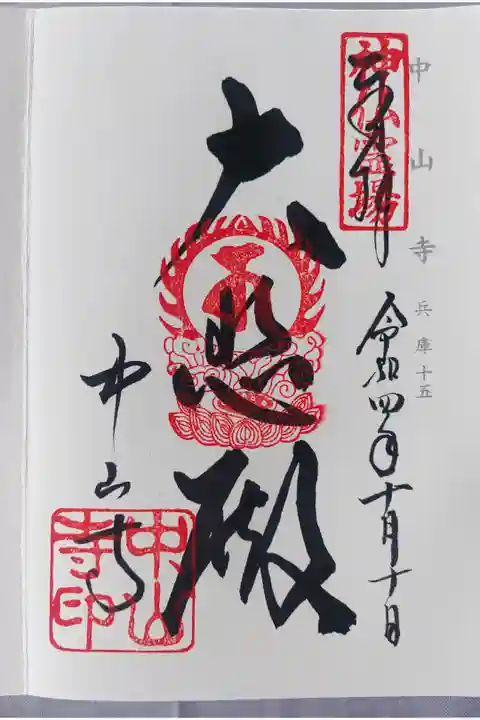 中山寺 兵庫十五
奉拝
神仏霊場
令和四年十月十日
大悲殿
中山寺
中山寺印